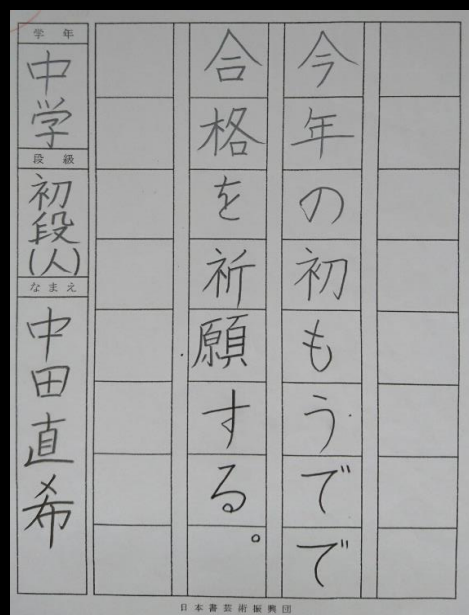 今年の初もうでで
合格を祈願する。
学年
中学
段級
初段
(人)
なまえ
中田直希
日本書芸術振興団